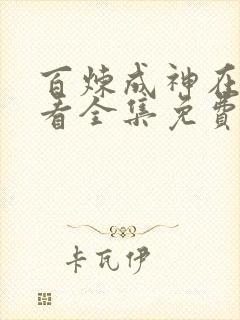 百炼成神在
看全集免費
卡瓦伊